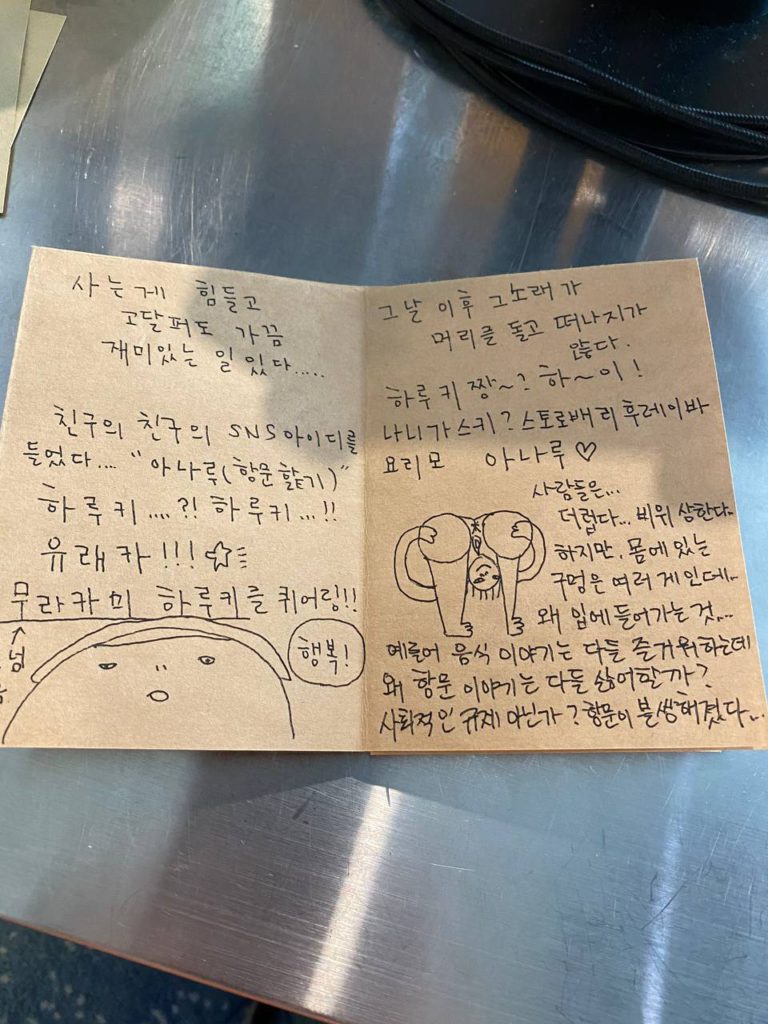 사는게 힘들고
고달퍼도 가끔
재미있는 일 있다.....
친구의 친구의 SNS 아이디를
들었다... "아나루(항문 핥기)"
하루키....?! 하루키...!!
유래카!!!
무라카미 하루키를 퀴어링!!
넘
행복!
그날 이후 그노래가
머리를 돌고 떠나지가
않다.
하루키 짱~? 하~이!
나니가스키? 스토로배리후레이바
요리모 아나루♡
사람들은...
더럽다... 비위 상한다..
하지만, 몸에 있는
구멍은 여러 게인데..
왜 입에 들어가는 것...
예를어 음식 이야기는 다들 즐거워하는데
왜 항문 이야기는 다들 싫어할까?
사회적인 규제 아닌가? 항문이 불쌍해졌다...